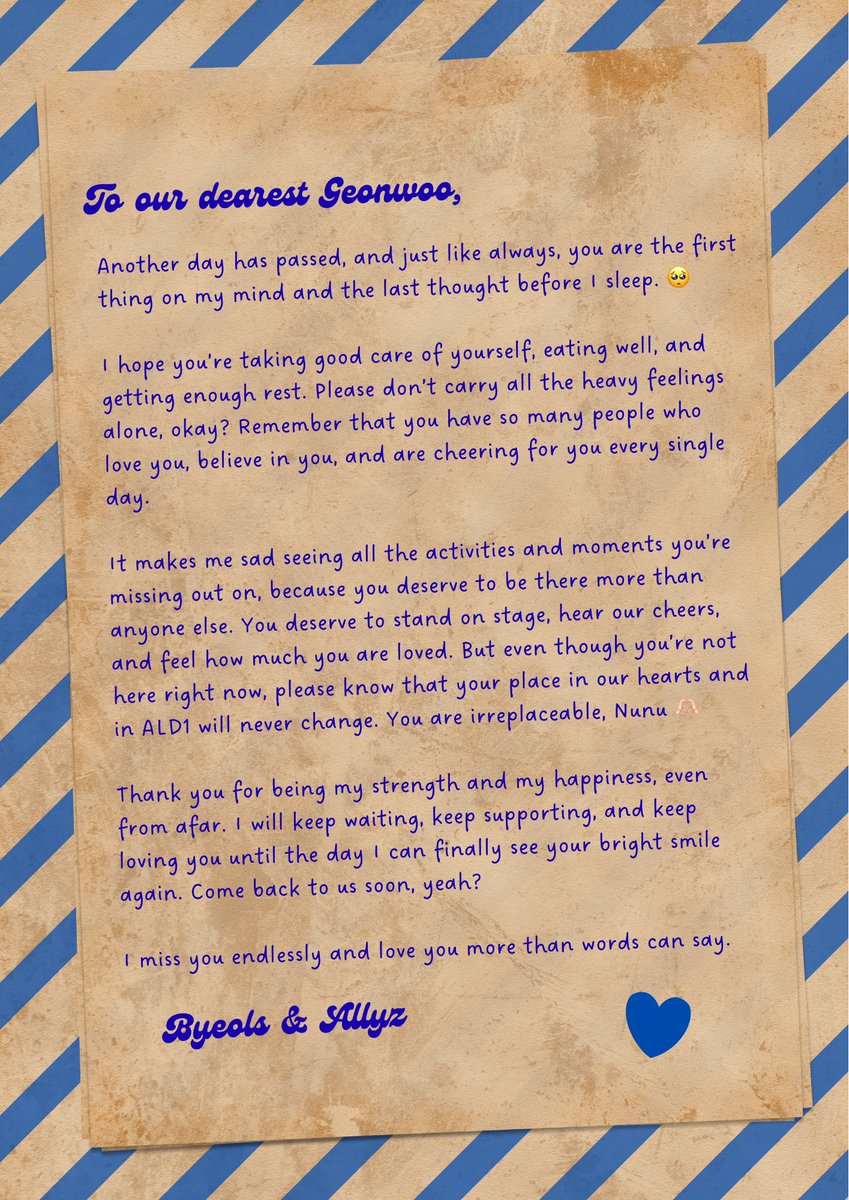 To our dearest Geonwoo,
Another day has passed, and just like always, you are the first
thing on my mind and the last thought before I sleep. 🥺
I hope you're taking good care of yourself, eating well, and
getting enough rest. Please don't carry all the heavy feelings
alone, okay? Remember that you have so many people who
love you, believe in you, and are cheering for you every single
day.
It makes me sad seeing all the activities and moments you're
missing out on, because you deserve to be there more than
anyone else. You deserve to stand on stage, hear our cheers,
and feel how much you are loved. But even though you're not
here right now, please know that your place in our hearts and
in ALD1 will never change. You are irreplaceable, Nunu 🫶🏻
Thank you for being my strength and my happiness, even
from afar. I will keep waiting, keep supporting, and keep
loving you until the day I can finally see your bright smile
again. Come back to us soon, yeah?
I miss you endlessly and love you more than words can say.
Byeols & Allyz